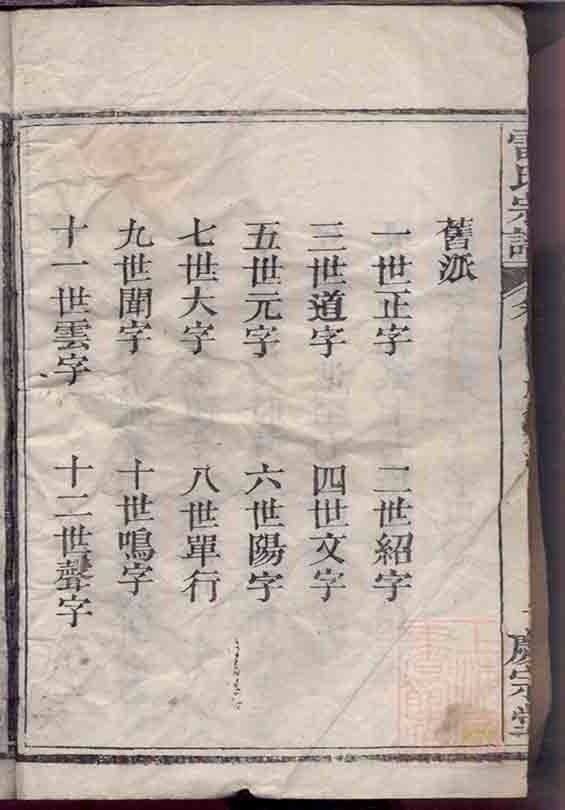 雷氏宗譜
舊派
一世正字　二世紹字
三世道字　四世文字
五世元字　六世陽字
七世大字　八世單行
九世聞字　十世鳴字
十一世雲字　十二世聲字